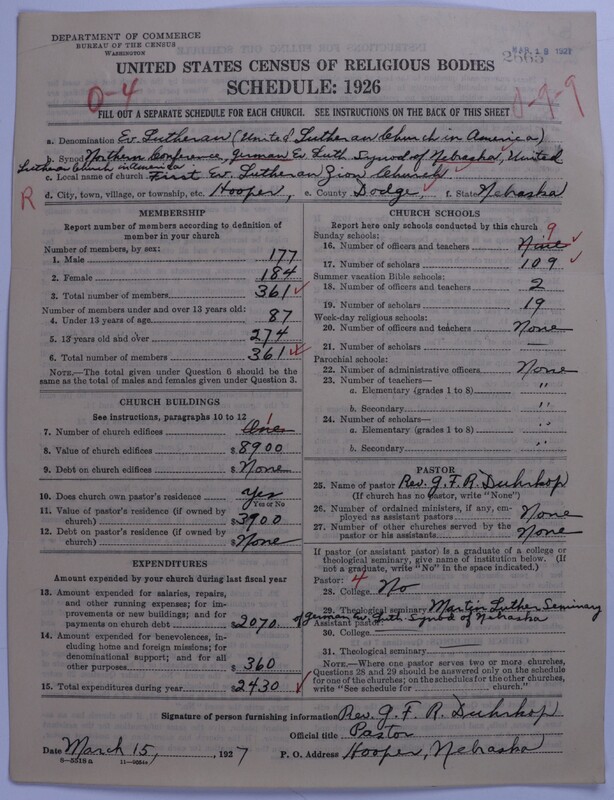 DEPARTMENT OF COMMERCE
BUREAU OF THE CENSUS
WASHINGTON
UNITED STATES CENSUS OF RELIGIOUS BODIES
SCHEDULE: 1926
0-4
FILL OUT A SEPARATE SCHEDULE FOR EACH CHURCH. SEE INSTRUCTIONS ON THE BACK OF THIS SHEET
a. Denomination Ev. Lutheran (United Lutheran Church in America)
b. Synod Northern Conference, German Ev. Luth. Synod of Nebraska, United
Lutheran Church in America
c. Local name of church First Ev. Lutheran Zion Church
R
d. City, town, village, or township, etc. Hooper, e. County Dodge, f. State Nebraska
MEMBERSHIP
Report number of members according to definition of
member in your church
Number of members, by sex:
1. Male 177
2. Female 184
3. Total number of members 361
Number of members under and over 13 years old:
4. Under 13 years of age 87
5. 13 years old and over 274
6. Total number of members 361
NOTE.—The total given under Question 6 should be
the same as the total of males and females given under Question 3.
CHURCH BUILDINGS
See instructions, paragraphs 10 to 12
7. Number of church edifices One 1
8. Value of church edifices $8900
9. Debt on church edifices $None
10. Does church own pastor's residence yes
Yes or No
11. Value of pastor's residence (if owned by
church) $3900
12. Debt on pastor's residence (if owned by
church) $None
EXPENDITURES
Amount expended by your church during last fiscal year
13. Amount expended for salaries, repairs,
and other running expenses; for im-
provements or new buildings; and for
payments on church debt $2070
14. Amount expended for benevolences, in-
cluding home and foreign missions; for
denominational support; and for all
other purposes $360
15. Total expenditures during year $2430
CHURCH SCHOOLS
Report here only schools conducted by this church
Sunday schools: 9
16. Number of officers and teachers Nine
17. Number of scholars 109
Summer vacation Bible schools:
18. Number of officers and teachers 2
19. Number of scholars 19
Week-day religious schools:
20. Number of officers and teachers None
21. Number of scholars —
Parochial schools:
22. Number of administrative officers None
23. Number of teachers—
a. Elementary (grades 1 to 8) "
b. Secondary "
24. Number of scholars—
a. Elementary (grades 1 to 8) "
b. Secondary "
PASTOR
25. Name of pastor Rev. G. F. R. Duhrkop
(If church has no pastor, write "None")
26. Number of ordained ministers, if any, em-
ployed as assistant pastors None
27. Number of other churches served by the
pastor or his assistants None
If pastor (or assistant pastor) is a graduate of a college or
theological seminary, give name of institution below. (If
not a graduate, write "No" in the space indicated.)
Pastor: 4
28. College No
29. Theological seminary Martin Luther Seminary
of German Ev. Luth. Synod of Nebraska
Assistant pastor:
30. College
31. Theological seminary
NOTE.—Where one pastor serves two or more churches,
Questions 28 and 29 should be answered only on the schedule
for one of the churches; on the schedules for the other churches,
write "See schedule for church."
Signature of person furnishing information Rev. G. F. R. Duhrkop
Official title Pastor
Date March 15, 1927 P. O. Address Hooper, Nebraska